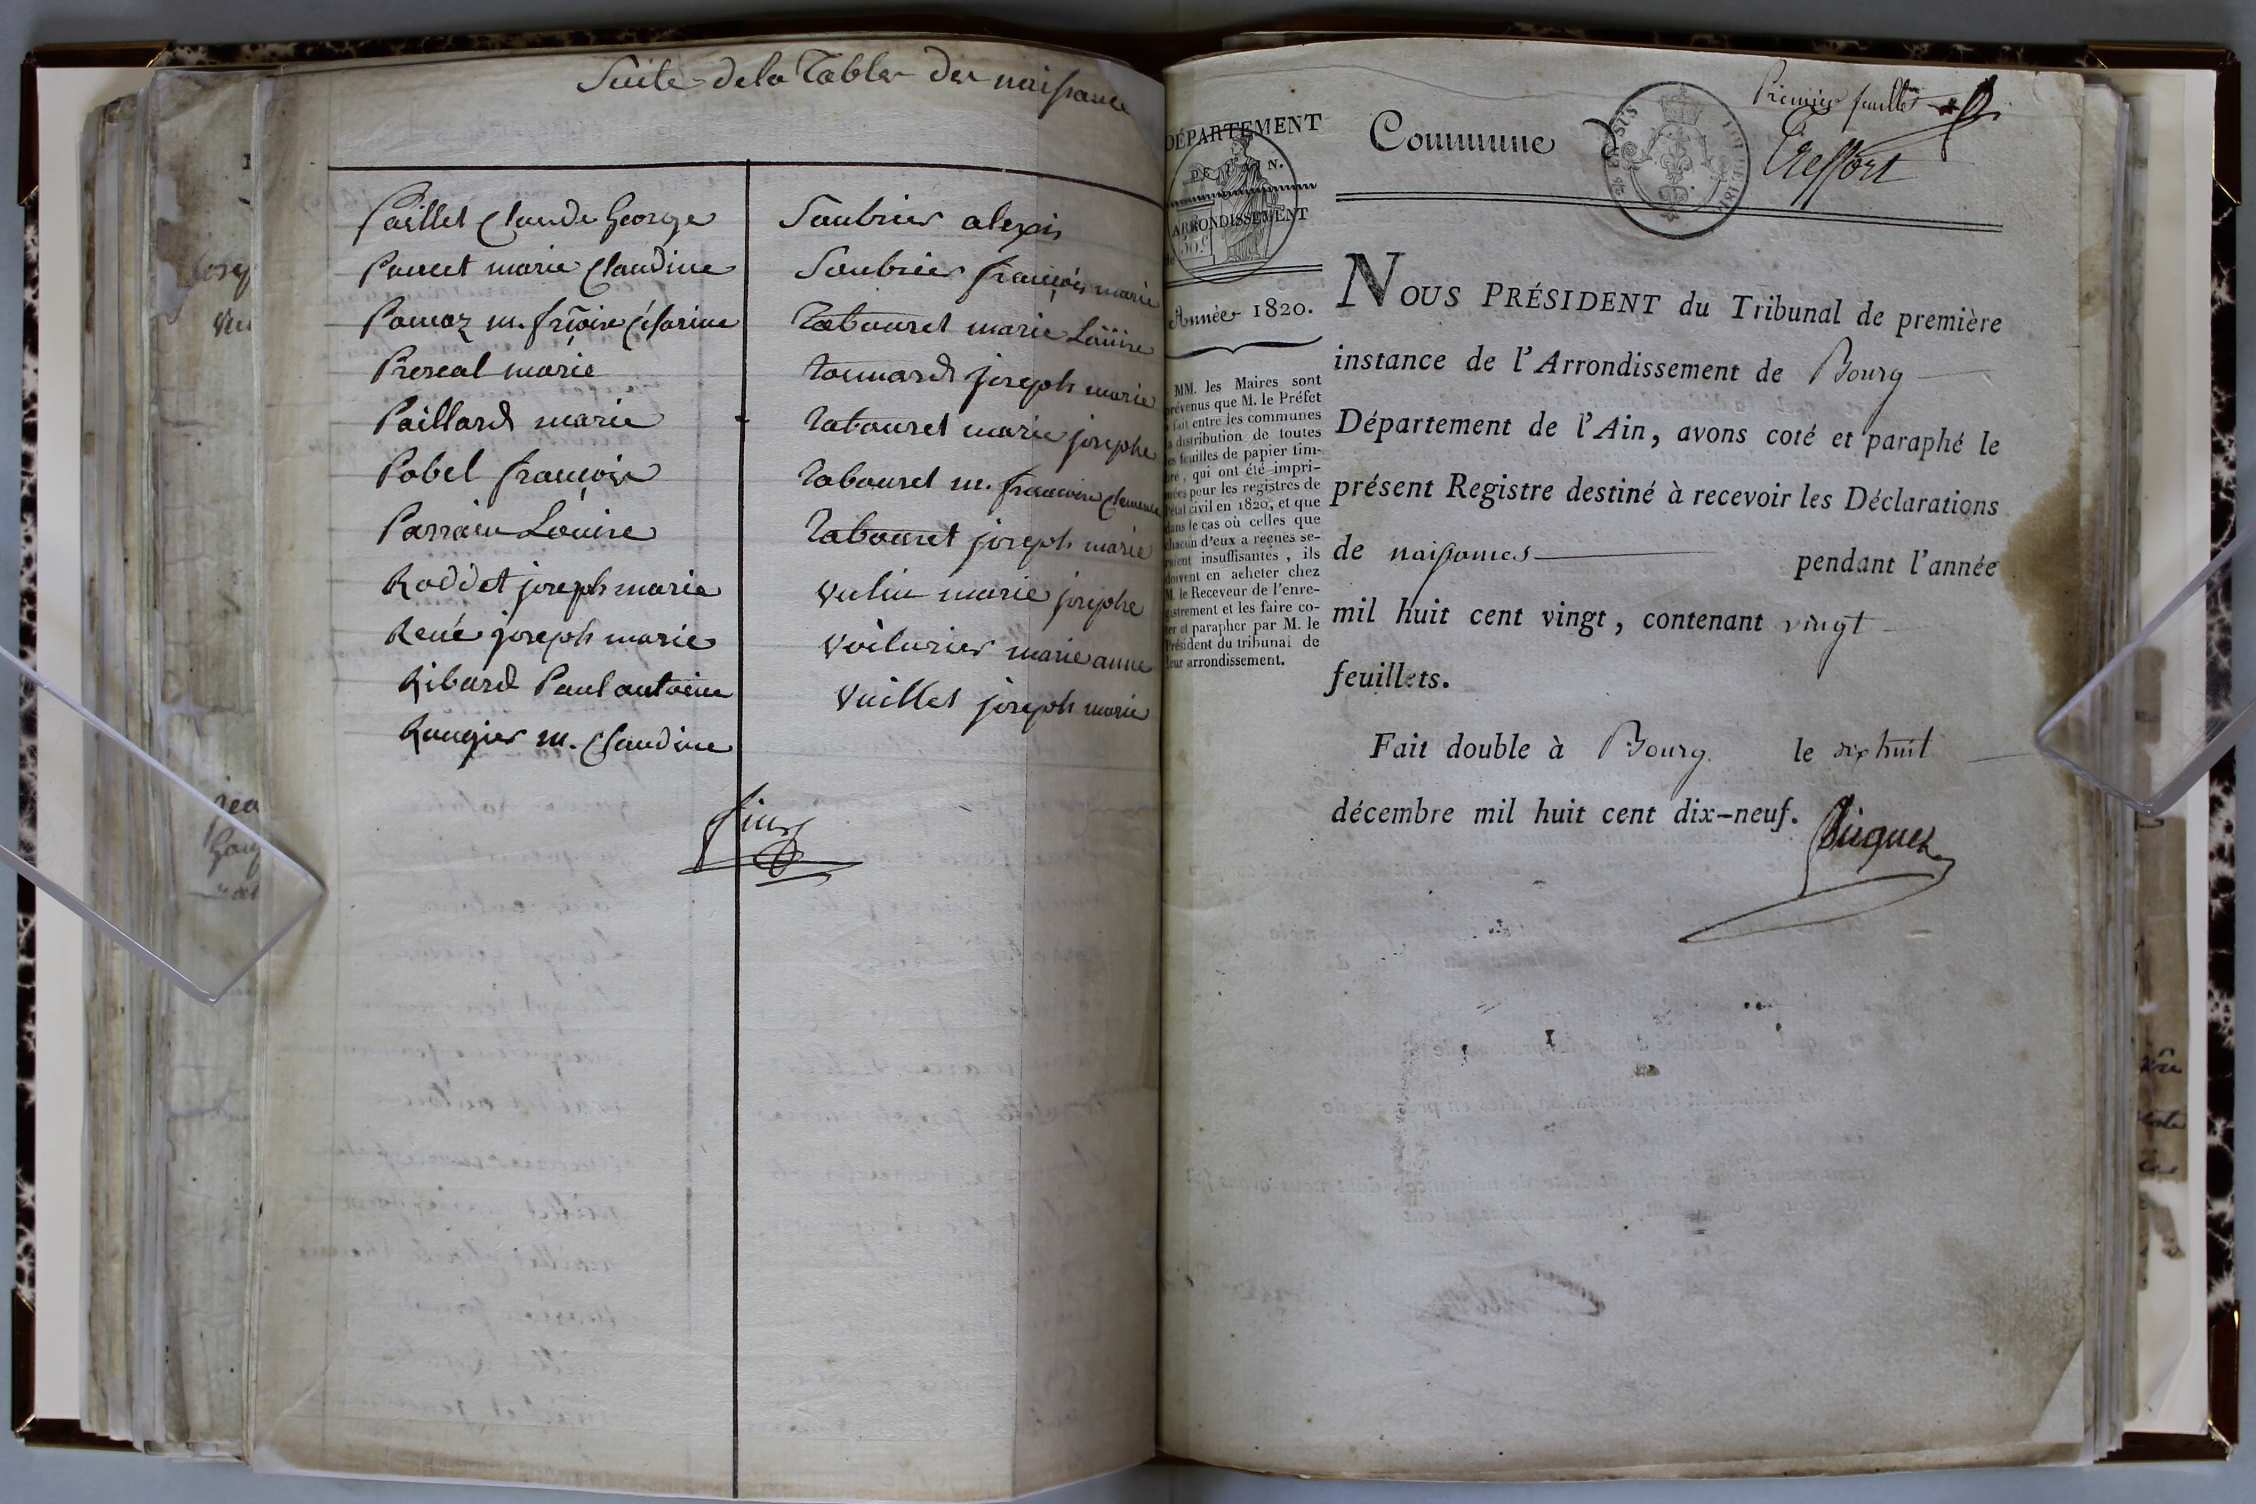 Suite de la Table des naissance
Paillet Claude George
Poncet marie Claudine
Pomaz m. frçoise Césarine
Preseal marie
Paillard marie
Pobel françois
Parrain Louise
Roddet joseph marie
René joseph marie
Ribard Paul antoine
Rougier m. Claudine
Saubrier alexis
Saubrier françois marie
Tabouret marie Louise
Tonnard joseph marie
Tabouret marie josephe
Tabouret m. francoise clemence
Tabouret joseph marie
Vulin marie josephe
Voiturier marie anne
Vuillet joseph marie
fin
Premier feuillet
DÉPARTEMENT
DE L'AIN.
ARRONDISSEMENT
de
Année 1820.
MM. les Maires sont
prévenus que M. le Préfet
a fait entre les communes
la distribution de toutes
les feuilles de papier tim-
bré, qui ont été impri-
mées pour les registres de
l'état civil en 1820, et que
dans le cas où celles que
chacun d'eux a reçues se-
roient insuffisantes, ils
doivent en acheter chez
M. le Receveur de l'enre-
gistrement et les faire co-
ter et parapher par M. le
Président du tribunal de
leur arrondissement.
Commune d
Treffort
NOUS PRÉSIDENT du Tribunal de première
instance de l'Arrondissement de Bourg
Département de l'Ain, avons coté et paraphé le
présent Registre destiné à recevoir les Déclarations
de naissances pendant l'année
mil huit cent vingt, contenant vingt
feuillets.
Fait double à Bourg le dix huit
décembre mil huit cent dix-neuf.